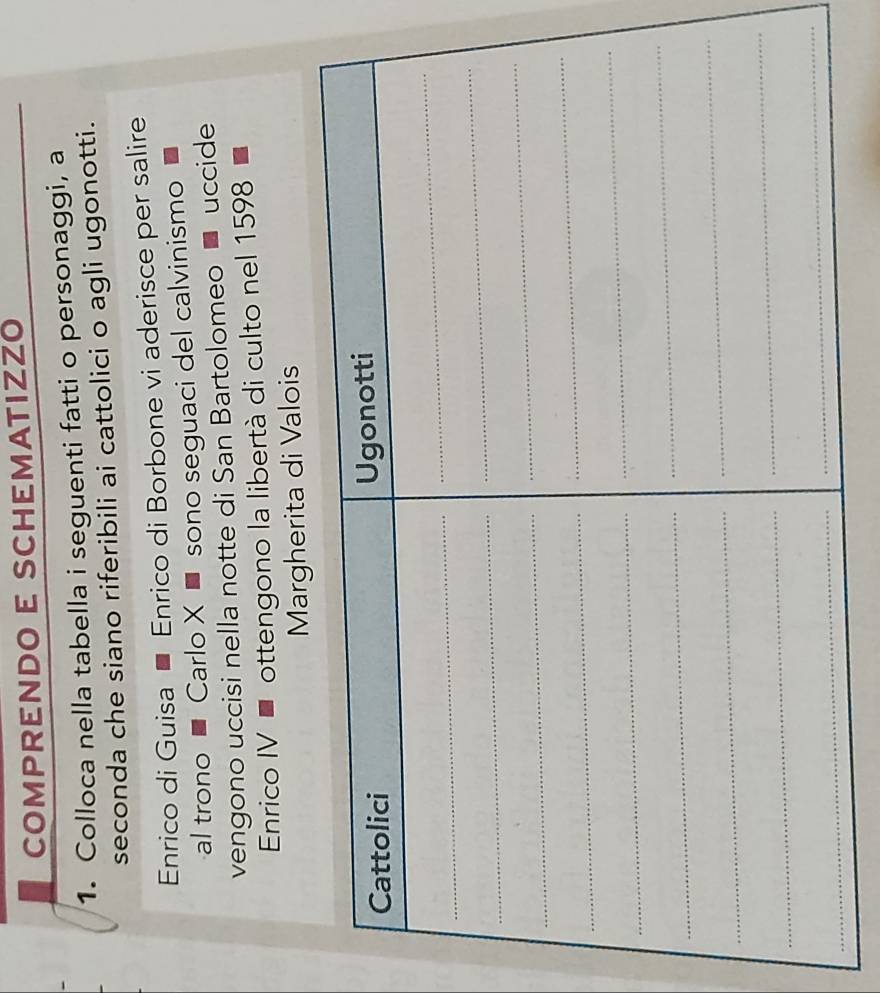 COMPRENDO E SCHEMATIZZO
1. Colloca nella tabella i seguenti fatti o personaggi, a
seconda che siano riferibili ai cattolici o agli ugonotti.
Enrico di Guisa ■ Enrico di Borbone vi aderisce per salire
al trono ■ Carlo X ■ sono seguaci del calvinismo ■
vengono uccisi nella notte di San Bartolomeo ■ uccide
Enrico IV ■ ottengono la libertà di culto nel 1598 ■
Margherita di Valois
Cattolici Ugonotti